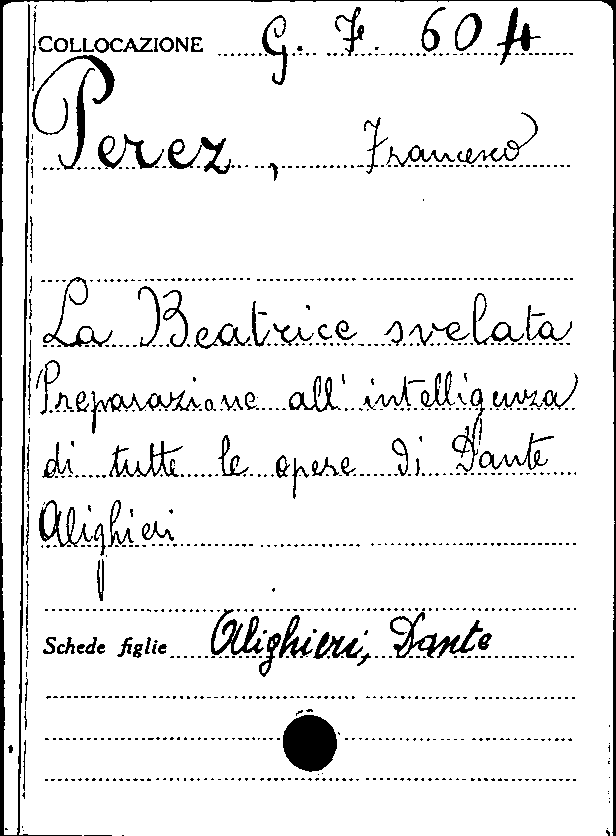 COLLOCAZIONE G. F. 604
Perez, Francesco
La Beatrice svelata
Preparazione all'intelligenza
di tutte le opere di Dante
Alighieri
Schede figlie Alighieri, Dante